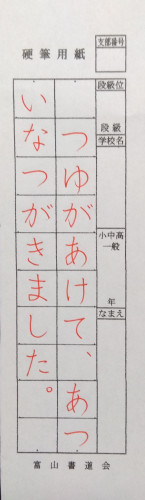 硬筆用紙
支部番号
段級位
段級
学校名
小中高
一般
年
なまえ
つゆがあけて、あつ
いなつがきました。
富山書道会